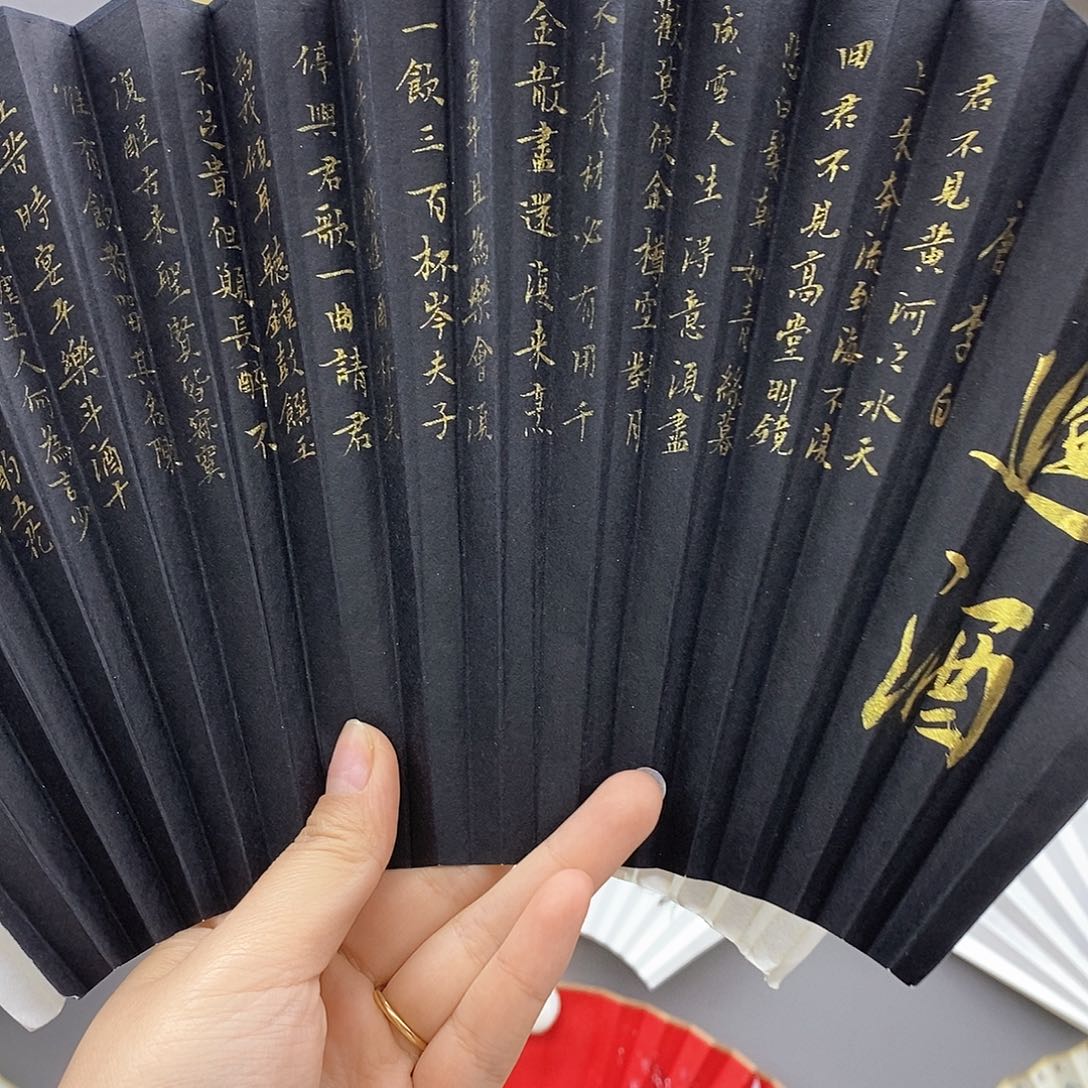 進酒
唐李白
君不見黃河之水天
上来奔流到海不復
回君不見高堂明鏡
悲白髮朝如青絲暮
成雪人生得意須盡
歡莫使金樽空對月
天生我材必有用千
金散盡還復来烹
羊宰牛且為樂會須
一飲三百杯岑夫子
丹丘生將進酒杯莫
停與君歌一曲請君
為我傾耳聽鐘鼓饌玉
不足貴但願長醉不
復醒古来聖賢皆寂寞
惟有飲者留其名陳
王昔時宴平樂斗酒十
謔主人何為言少
酌五花